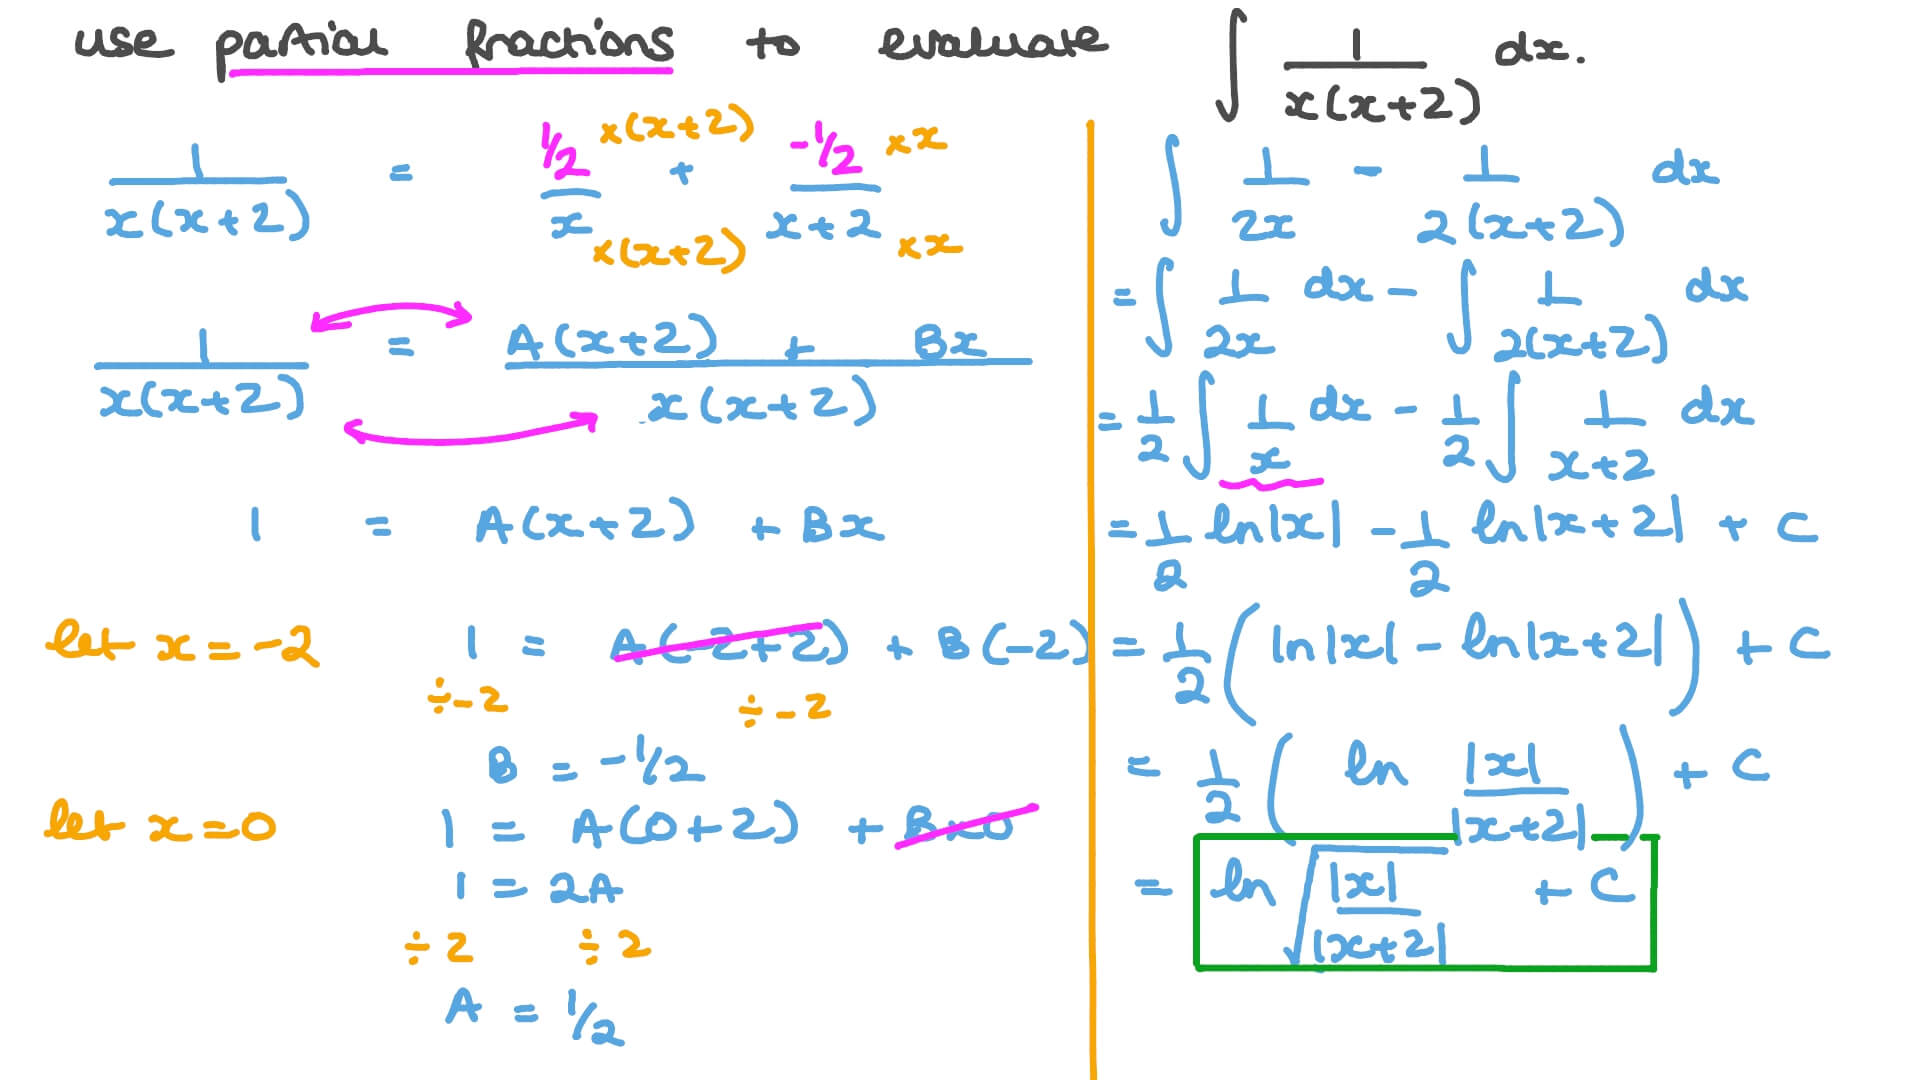 use partial fractions to evaluate ∫ 1/x(x+2) dx.
1/x(x+2) = ½/x ×(x+2)/×(x+2) + -½/x+2 ×x/×x
1/x(x+2) = A(x+2) + Bx/x(x+2)
1 = A(x+2) + Bx
let x=-2 1 = A(-2+2) + B(-2)
÷-2 ÷-2
B = -1/2
let x=0 1 = A(0+2) + B×0
1 = 2A
÷2 ÷2
A = 1/2
∫ 1/2x - 1/2(x+2) dx
= ∫ 1/2x dx - ∫ 1/2(x+2) dx
= 1/2 ∫ 1/x dx - 1/2 ∫ 1/x+2 dx
= 1/2 ln|x| - 1/2 ln|x+2| + C
= 1/2 (ln|x| - ln|x+2|) + C
= 1/2 (ln |x|/|x+2|) + C
= ln √|x|/|x+2| + C